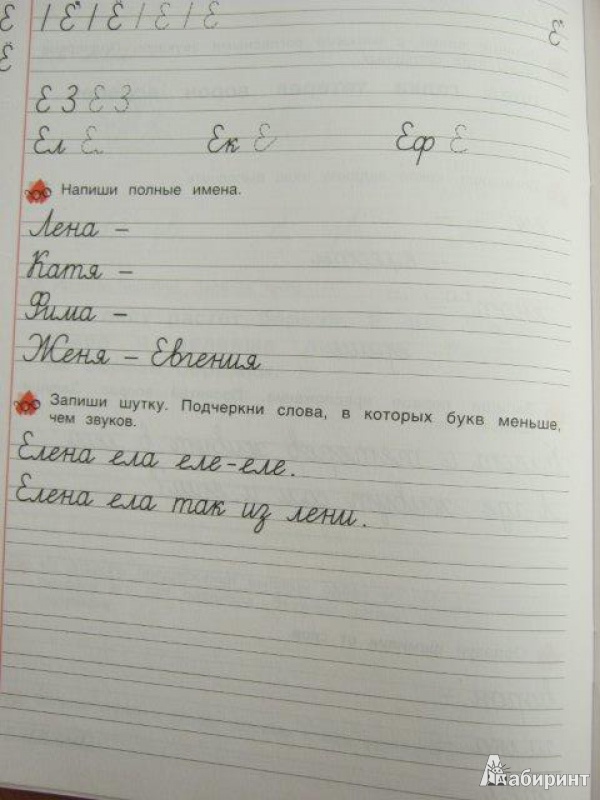 Е Е Е Е Е Е
Е З Е З
Ел Е Ек Е Еф Е
Напиши полные имена.
Лена –
Катя –
Фима –
Женя – Евгения
Запиши шутку. Подчеркни слова, в которых букв меньше,
чем звуков.
Елена ела еле-еле.
Елена ела так из лени.
Лабиринт